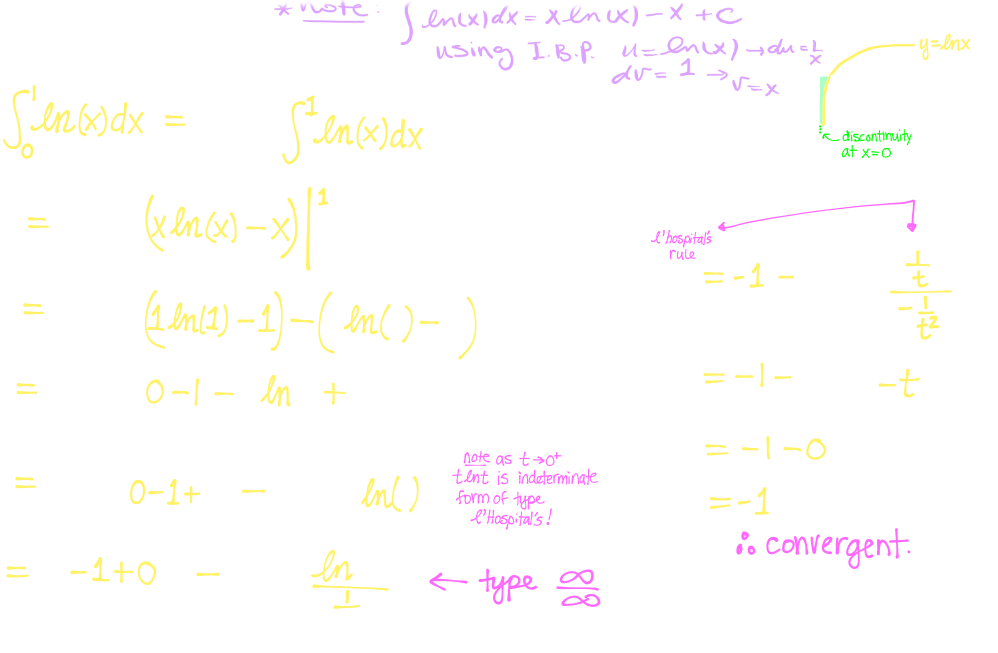 * note: ∫ ln(x)dx = x ln(x) - x + C
using I.B.P. u = ln(x) → du = 1/x
dv = 1 → v = x
y = lnx
discontinuity
at x=0
∫₀¹ ln(x)dx = ∫¹ ln(x)dx
= (x ln(x) - x)|¹
= (1 ln(1) - 1) - ( ln( ) - )
= 0 - 1 - ln +
= 0 - 1 + - ln( )
note as t → 0⁺
t lnt is indeterminate
form of type
l'Hospital's!
= -1 + 0 - ln / 1 ← type ∞/∞
l'hospital's
rule
= -1 - (1/t)/(-1/t²)
= -1 - -t
= -1 - 0
= -1
∴ convergent.